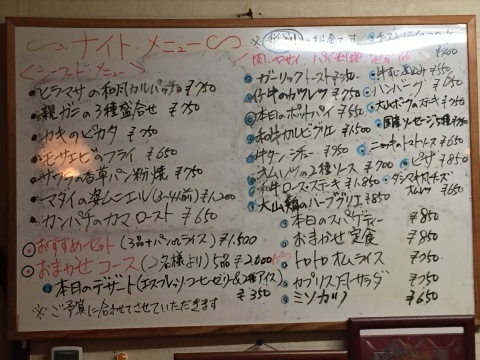 ナイト・メニュー
<シーフードメニュー>
ヒラマサの和風カルパッチョ ¥750
親ガニの3種盛合せ ¥750
カキのピカタ ¥750
モサエビのフライ ¥650
サワラの香草パン粉焼 ¥750
マダイの姿ムニエル(3~4人前) ¥1,200
カンパチのカマ ロースト ¥650
おすすめセット(3品+パンorライス) ¥1,500
おまかせコース(2名様より)5品 ¥2,000から
本日のデザート(エスプレッソコーヒーゼリー&2種アイス)
¥350
※ご予算に合わせてさせていただきます
ガーリックトースト ¥350
仔牛のカツレツ
本日のポットパイ
和牛カルビグリエ ¥1,500
牛タンシチュー
キムハツの2種ソース ¥700
和牛ロースステキ ¥1,850
大山鶏のハーブグリエ ¥850
本日のスパゲティー ¥850
おまかせ定食 ¥850
トロトロオムライス ¥750
カプリス風サラダ ¥750
ミソカツ ¥650
ハンバーグ
大山ポークのステーキ
国産ソーセージ5種
ピザ ¥850
オムレツ ¥650